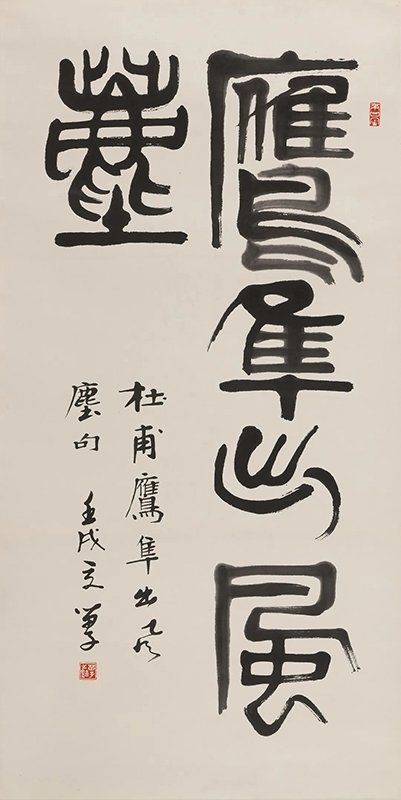 鷹隼出風
塵
杜甫鷹隼出風
塵句 壬戌文